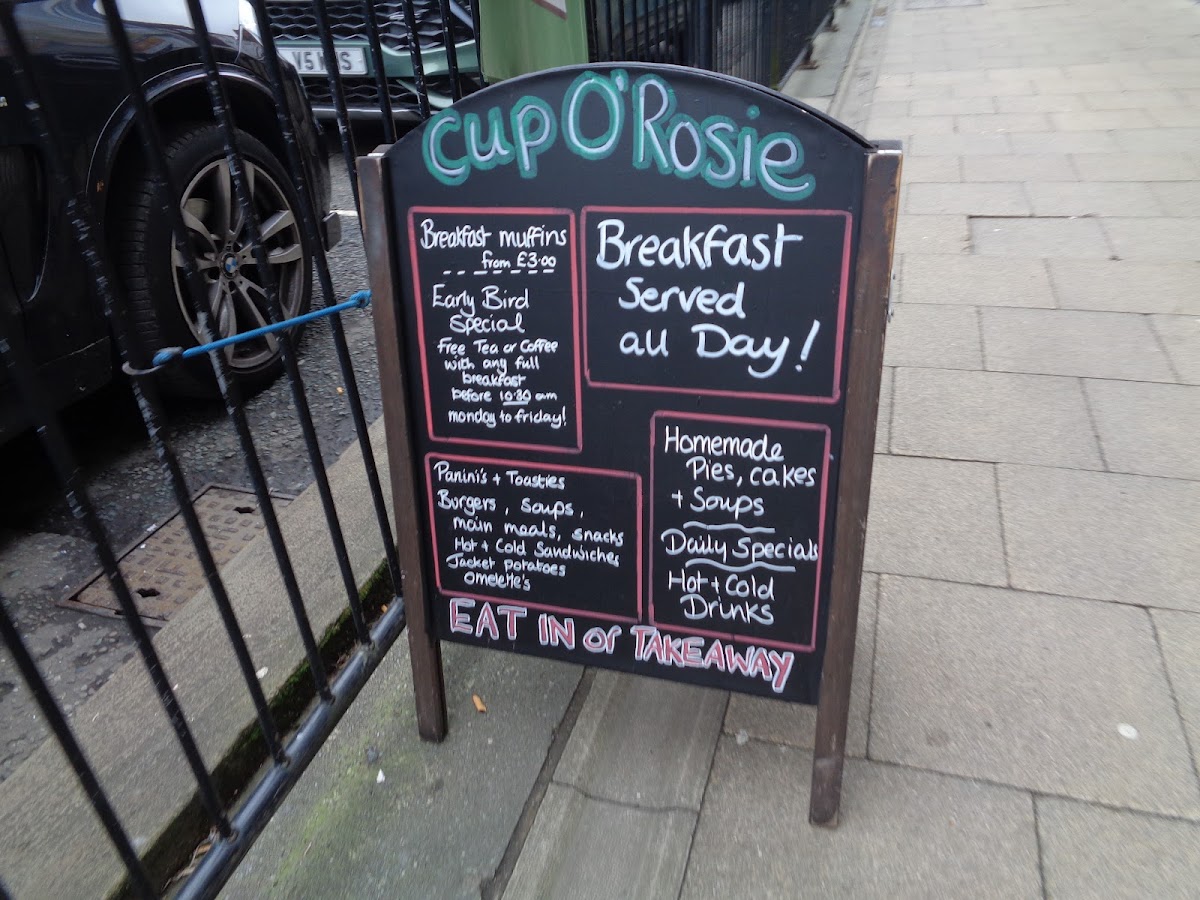 Cup O'Rosie
Breakfast muffins
from £3.00
Early Bird
Special
Free Tea or Coffee
with any full
breakfast
before 10.30 am
monday to friday!
Breakfast
Served
all Day!
Panini's + Toasties
Burgers, soups,
main meals, snacks
Hot + Cold Sandwiches
Jacket potatoes
Omelette's
Homemade
Pies, cakes
+ Soups
Daily Specials
Hot + Cold
Drinks
EAT IN or TAKEAWAY